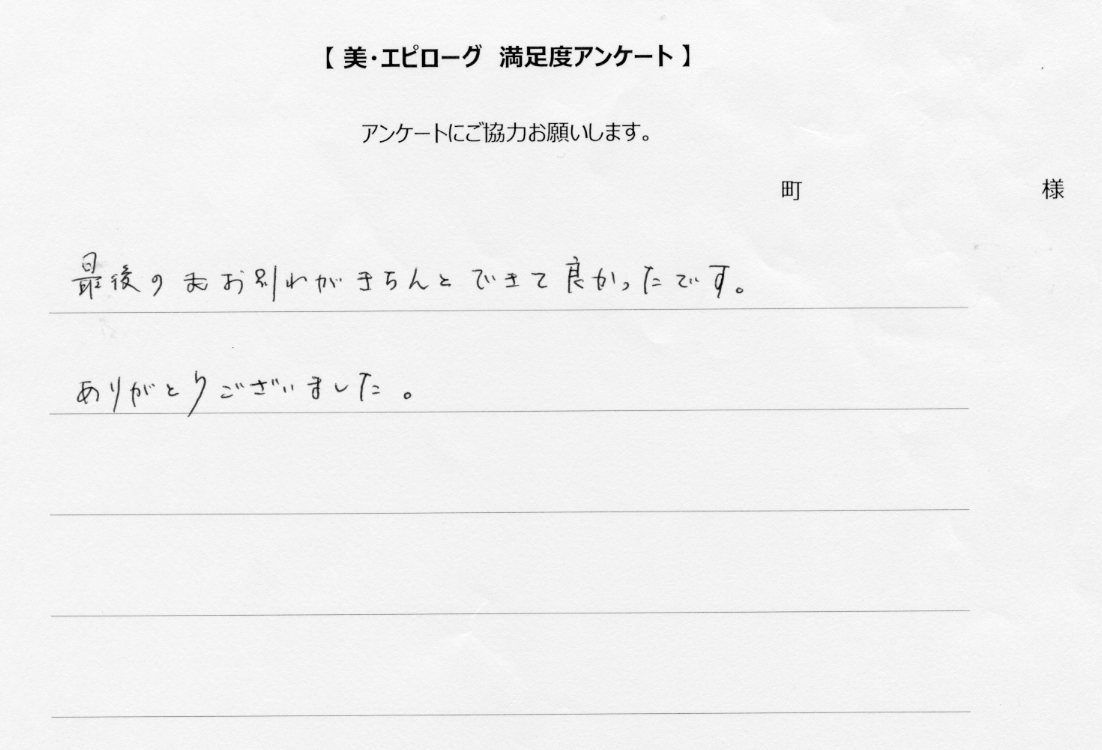 【 美・エピローグ 満足度アンケート 】
アンケートにご協力お願いします。
町 様
最後のお別れがきちんとできて良かったです。
ありがとうございました。